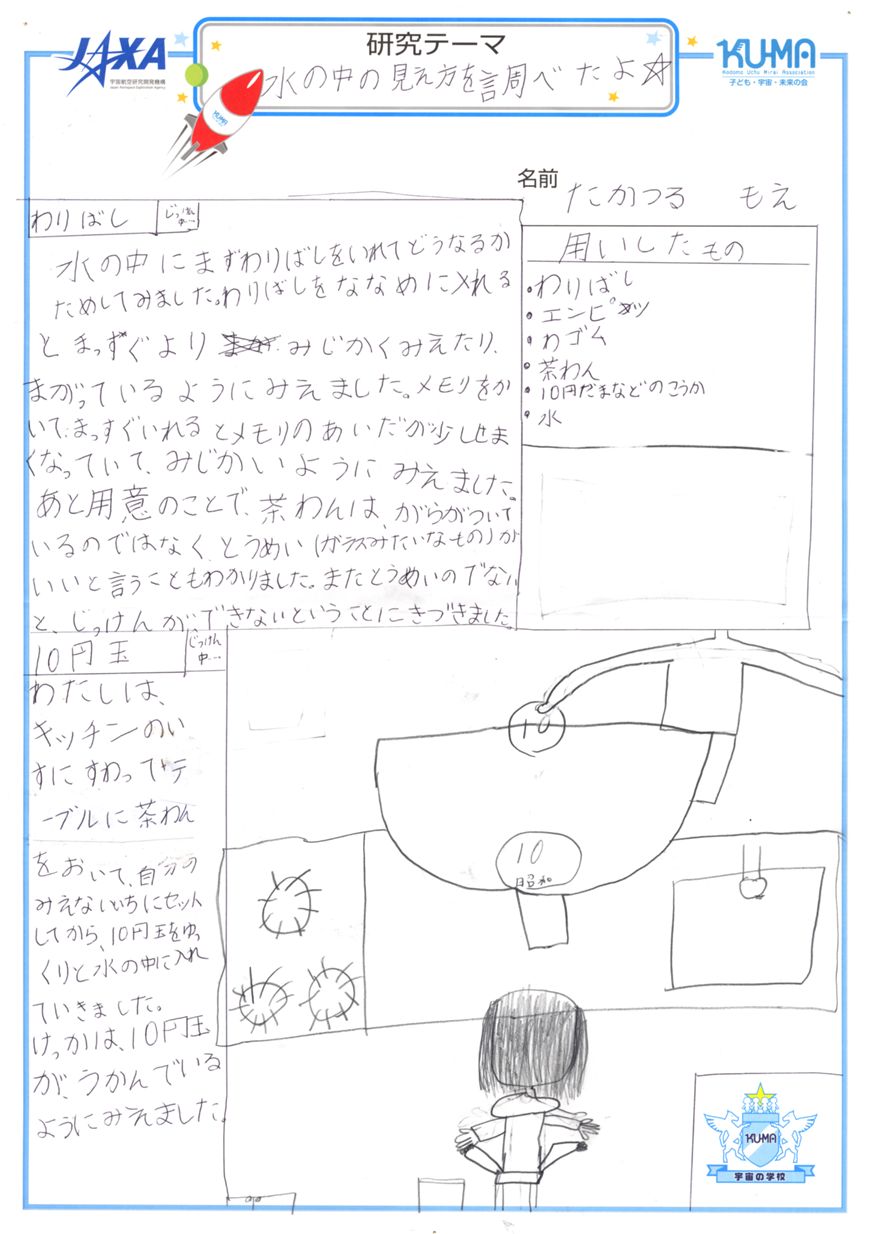 JAXA
宇宙航空研究開発機構
Japan Aerospace Exploration Agency
研究テーマ
水の中の見え方を調べたよ☆
KU-MA
Kodomo Uchu Mirai Association
子ども・宇宙・未来の会
KU-MA
名前 たかつる もえ
わりばし
じっけん
中…
水の中にまずわりばしをいれてどうなるか
ためしてみました。わりばしをななめに入れる
とまっすぐより みじかくみえたり、
まがっているようにみえました。メモリをか
いて、まっすぐいれるとメモリのあいだが少しせま
くなっていて、みじかいようにみえました。
あと用意のことで、茶わんは、がらがついて
いるのではなく、とうめい(ガラスみたいなもの)が
いいと言うこともわかりました。またとうめいのでない
と、じっけんが、できないということにきづきました。
用いしたもの
・わりばし
・エンピツ
・わゴム
・茶わん
・10円だまなどのこうか
・水
10円玉
じっけん
中…
わたしは、
キッチンのい
すにすわってテ
ーブルに茶わん
をおいて、自分の
みえないいちにセット
してから、10円玉をゆっ
くりと水の中に入れ
ていきました。
けっかは、10円玉
が、うかんでいる
ようにみえました。
10
10
昭和
KU-MA
宇宙の学校